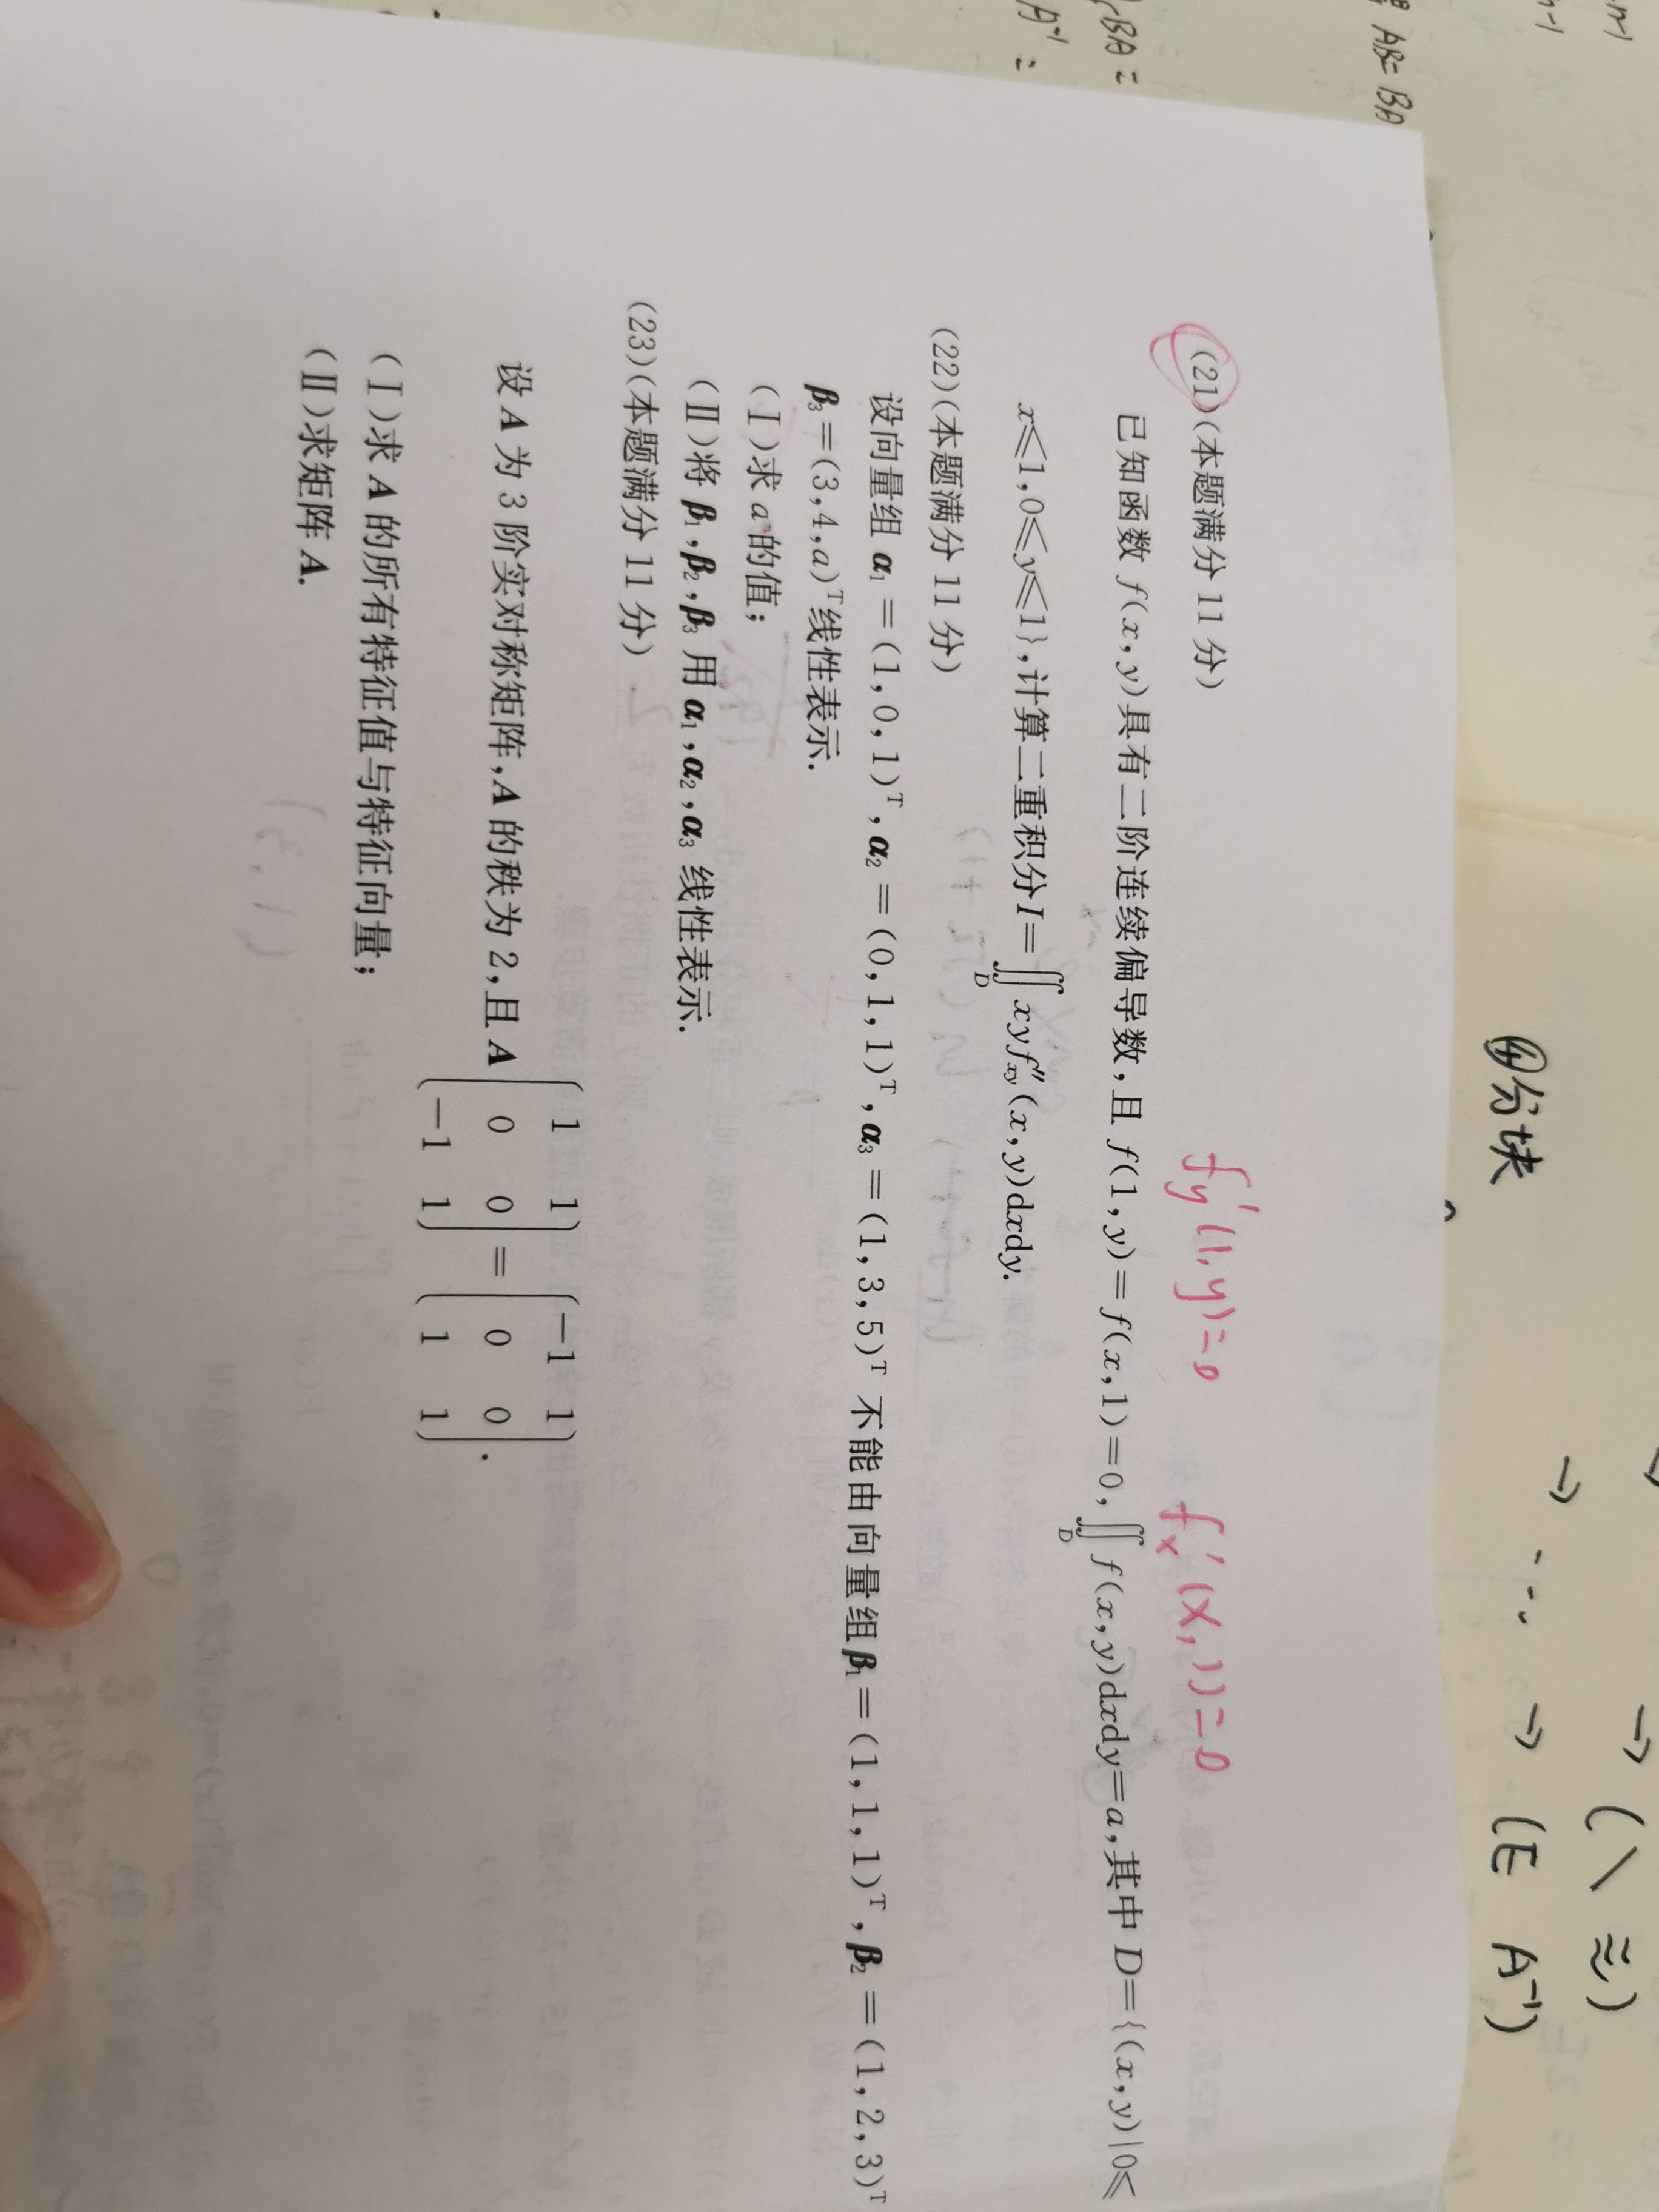 n-1
n-1
AB=BA
BA=
A⁻¹=
④分块
→ (\ ≈)
→ ⋯ → (E A⁻¹)
f'y(1,y)=0 f'x(x,1)=0
(21)(本题满分 11 分)
已知函数 f(x,y)具有二阶连续偏导数,且 f(1,y)=f(x,1)=0,∬_D f(x,y)dxdy=a,其中 D={(x,y)|0≤
x≤1,0≤y≤1},计算二重积分I=∬_D xyf''xy(x,y)dxdy.
(22)(本题满分 11 分)
设向量组 α₁=(1,0,1)ᵀ,α₂=(0,1,1)ᵀ,α₃=(1,3,5)ᵀ 不能由向量组β₁=(1,1,1)ᵀ,β₂=(1,2,3)ᵀ
β₃=(3,4,a)ᵀ线性表示.
(Ⅰ)求 a 的值;
(Ⅱ)将 β₁,β₂,β₃ 用 α₁,α₂,α₃ 线性表示.
(23)(本题满分 11 分)
设 A 为 3 阶实对称矩阵,A 的秩为 2,且 A(1 1; 0 0; −1 1)=(−1 1; 0 0; 1 1).
(Ⅰ)求 A 的所有特征值与特征向量;
(Ⅱ)求矩阵 A.